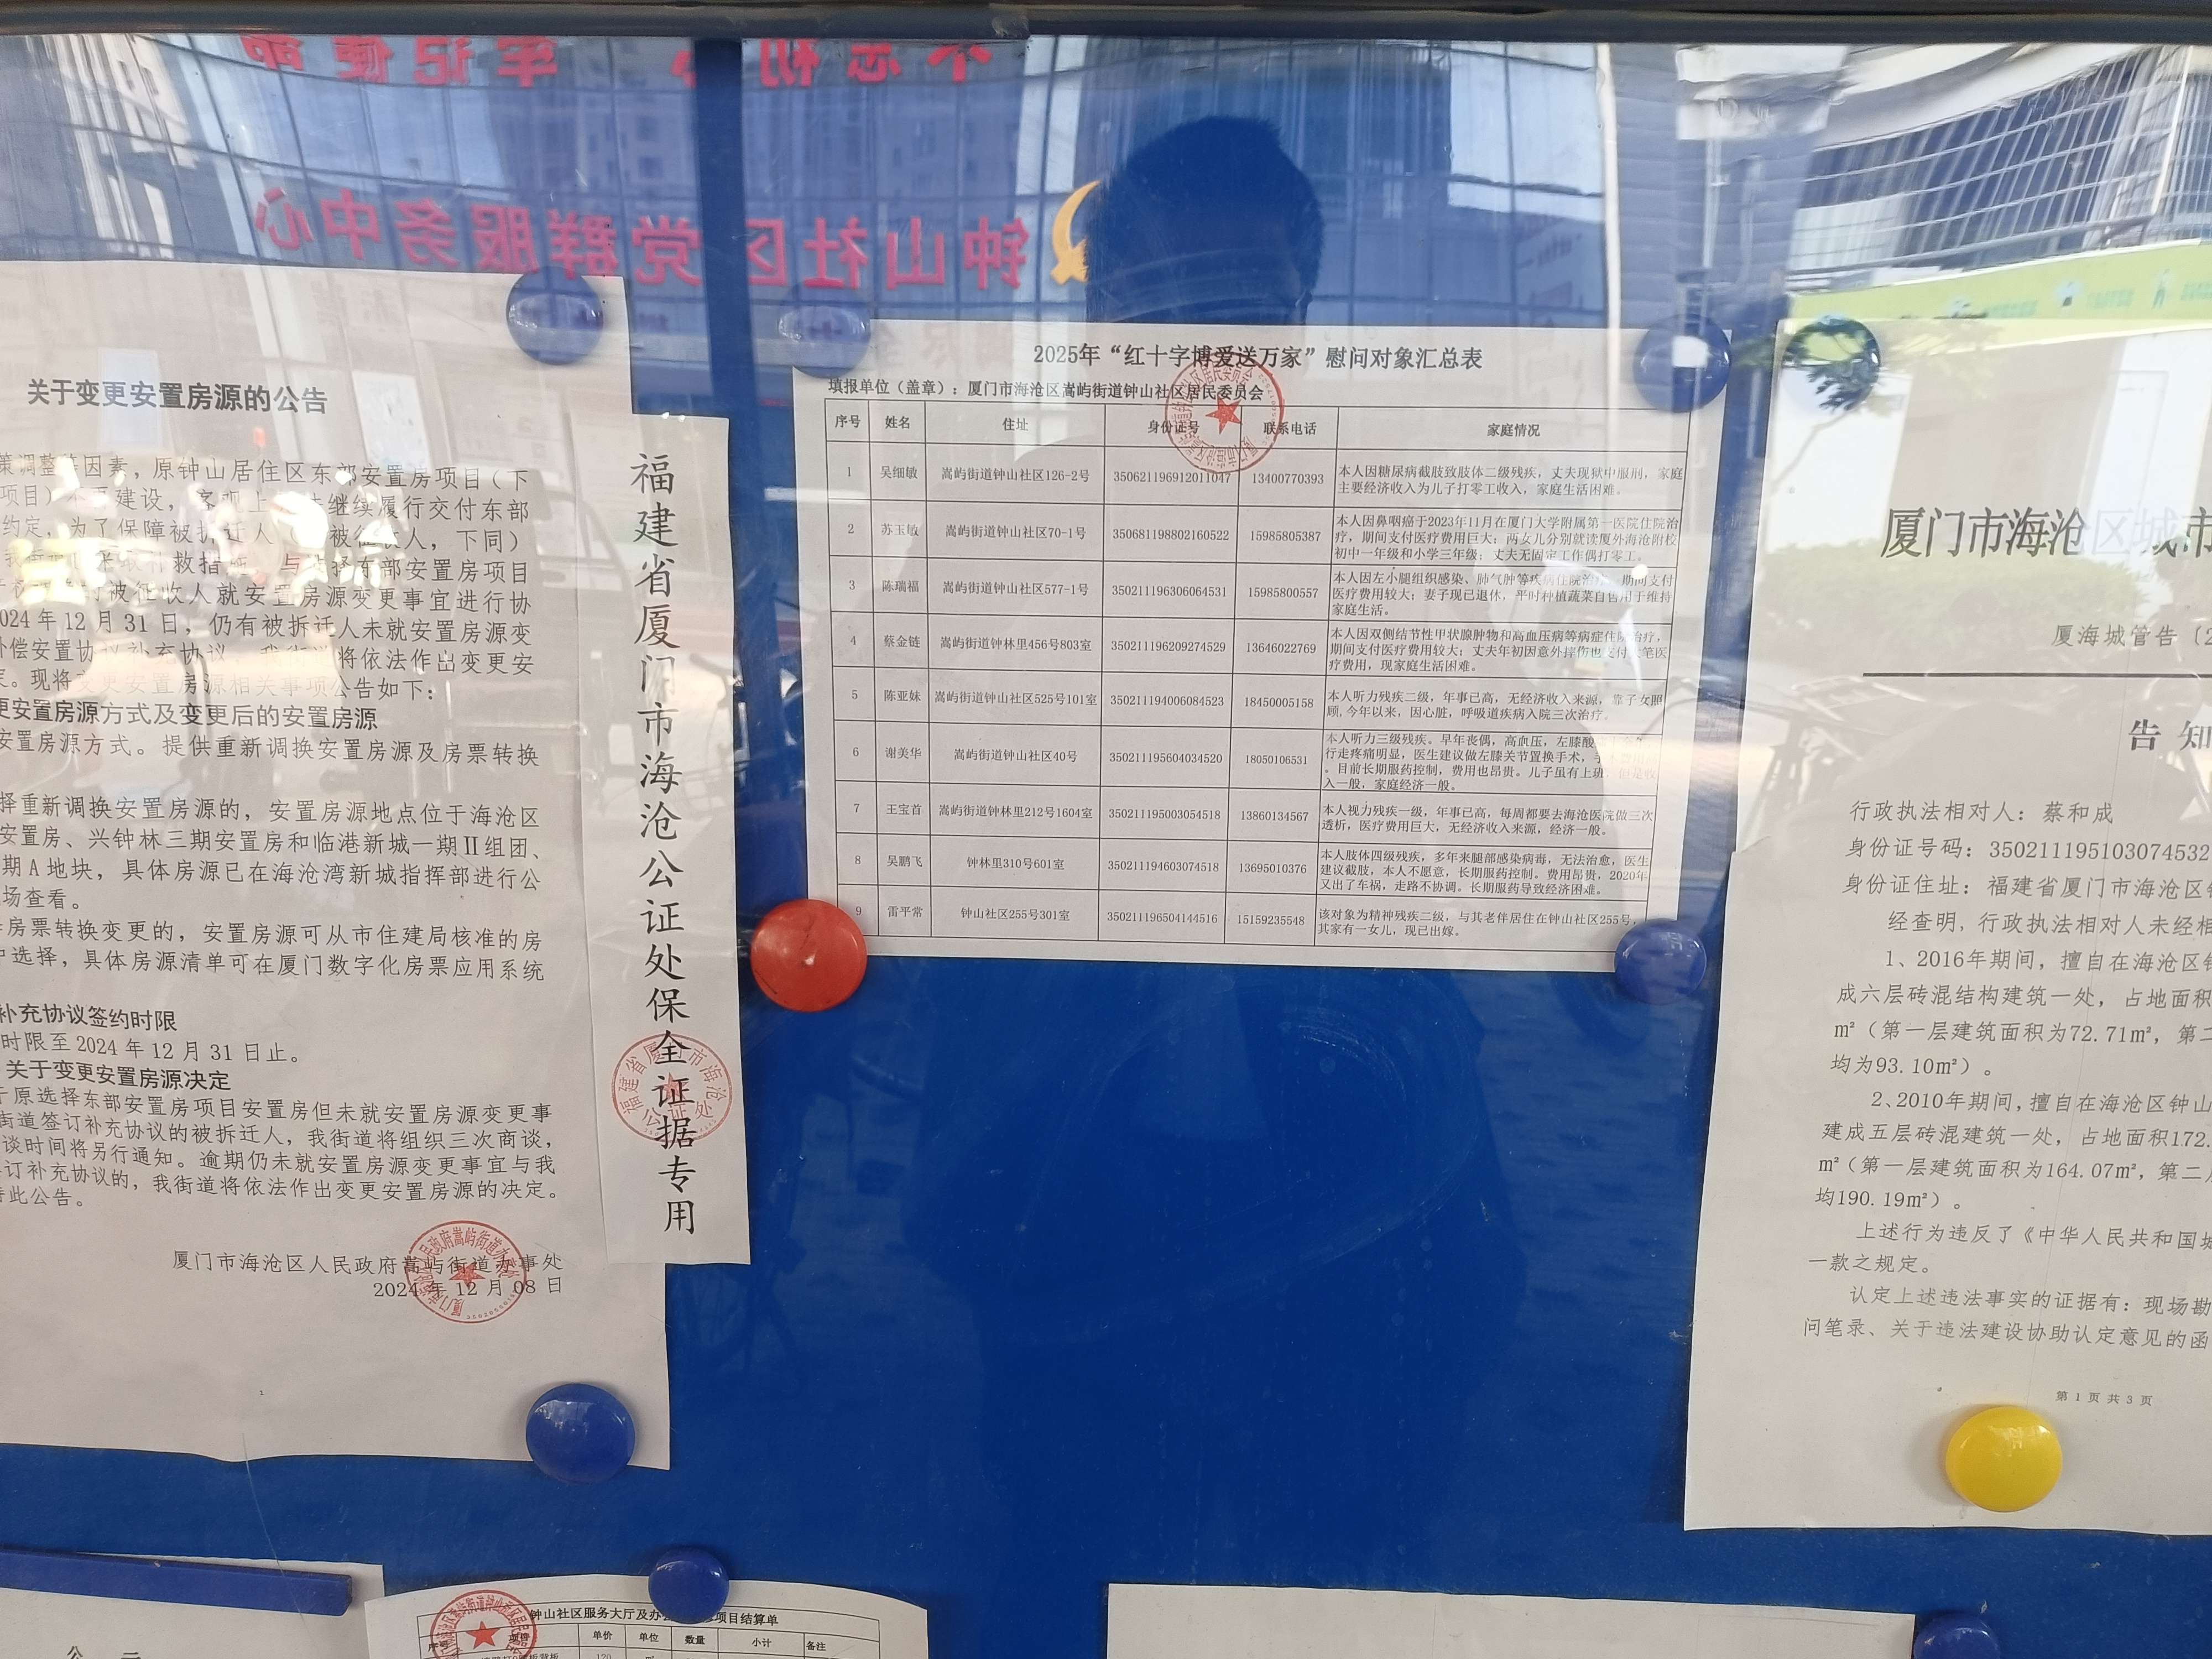 不忘初心 牢记使命
钟山社区党群服务中心
关于变更安置房源的公告
策调整等因素，原钟山居住区东部安置房项目（下
继续履行交付东部
约定，为了保障被拆迁人
被征收人，下同）
补救措施
东部安置房项目
被征收人就安置房源变更事宜进行协
024年12月31日，仍有被拆迁人未就安置房源变
偿安置协议补充协议，我街道将依法作出变更安
。现将变更安置房源相关事项公告如下：
更安置房源方式及变更后的安置房源
安置房源方式。提供重新调换安置房源及房票转换
择重新调换安置房源的，安置房源地点位于海沧区
安置房、兴钟林三期安置房和临港新城一期Ⅱ组团、
期A地块，具体房源已在海沧湾新城指挥部进行公
场查看。
房票转换变更的，安置房源可从市住建局核准的房
中选择，具体房源清单可在厦门数字化房票应用系统
补充协议签约时限
时限至2024年12月31日止。
关于变更安置房源决定
原选择东部安置房项目安置房但未就安置房源变更事
街道签订补充协议的被拆迁人，我街道将组织三次商谈，
谈时间将另行通知。逾期仍未就安置房源变更事宜与我
订补充协议的，我街道将依法作出变更安置房源的决定。
此公告。
厦门市海沧区人民政府嵩屿街道办事处
2024年12月08日
福建省厦门市海沧公证处保全证据专用
福建省厦门市海沧公证处
2025年“红十字博爱送万家”慰问对象汇总表
填报单位（盖章）：厦门市海沧区嵩屿街道钟山社区居民委员会
序号 姓名 住址 身份证号 联系电话 家庭情况
1 吴细敏 嵩屿街道钟山社区126-2号 350621196912011047 13400770393 本人因糖尿病截肢致肢体二级残疾，丈夫现狱中服刑，家庭
主要经济收入为儿子打零工收入，家庭生活困难。
2 苏玉敏 嵩屿街道钟山社区70-1号 350681198802160522 15985805387 本人因鼻咽癌于2023年11月在厦门大学附属第一医院住院治
疗，期间支付医疗费用巨大；两女儿分别就读厦外海沧附校
初中一年级和小学三年级；丈夫无固定工作偶打零工。
3 陈瑞福 嵩屿街道钟山社区577-1号 350211196306064531 15985800557 本人因左小腿组织感染、肺气肿等疾病住院治疗，期间支付
医疗费用较大；妻子现已退休，平时种植蔬菜自售用于维持
家庭生活。
4 蔡金链 嵩屿街道钟林里456号803室 350211196209274529 13646022769 本人因双侧结节性甲状腺肿物和高血压病等病症住院治疗，
期间支付医疗费用较大；丈夫年初因意外摔伤也支付大笔医
疗费用，现家庭生活困难。
5 陈亚妹 嵩屿街道钟山社区525号101室 350211194006084523 18450005158 本人听力残疾二级，年事已高，无经济收入来源，靠子女照
顾,今年以来，因心脏，呼吸道疾病入院三次治疗。
6 谢美华 嵩屿街道钟山社区40号 350211195604034520 18050106531 本人听力三级残疾。早年丧偶，高血压，左膝酸
行走疼痛明显，医生建议做左膝关节置换手术，
。目前长期服药控制，费用也昂贵。儿子虽有上班，但是收
入一般，家庭经济一般。
7 王宝首 嵩屿街道钟林里212号1604室 350211195003054518 13860134567 本人视力残疾一级，年事已高，每周都要去海沧医院做三次
透析，医疗费用巨大，无经济收入来源，经济一般。
8 吴鹏飞 钟林里310号601室 350211194603074518 13695010376 本人肢体四级残疾，多年来腿部感染病毒，无法治愈，医生
建议截肢，本人不愿意，长期服药控制。费用昂贵，2020年
又出了车祸，走路不协调。长期服药导致经济困难。
9 雷平常 钟山社区255号301室 350211196504144516 15159235548 该对象为精神残疾二级，与其老伴居住在钟山社区255号，
其家有一女儿，现已出嫁。
厦门市海沧区城市
厦海城管告〔2
告 知
行政执法相对人：蔡和成
身份证号码：350211195103074532
身份证住址：福建省厦门市海沧区钟
经查明，行政执法相对人未经相
1、2016年期间，擅自在海沧区钟
成六层砖混结构建筑一处，占地面积
m²（第一层建筑面积为72.71m²，第二
均为93.10m²）。
2、2010年期间，擅自在海沧区钟山
建成五层砖混建筑一处，占地面积172.
m²（第一层建筑面积为164.07m²，第二层
均190.19m²）。
上述行为违反了《中华人民共和国城
一款之规定。
认定上述违法事实的证据有：现场勘
问笔录、关于违法建设协助认定意见的函
第 1 页 共 3 页
钟山社区服务大厅及办公
项目结算单
项目 单价 单位 数量 小计 备注
120
公 示